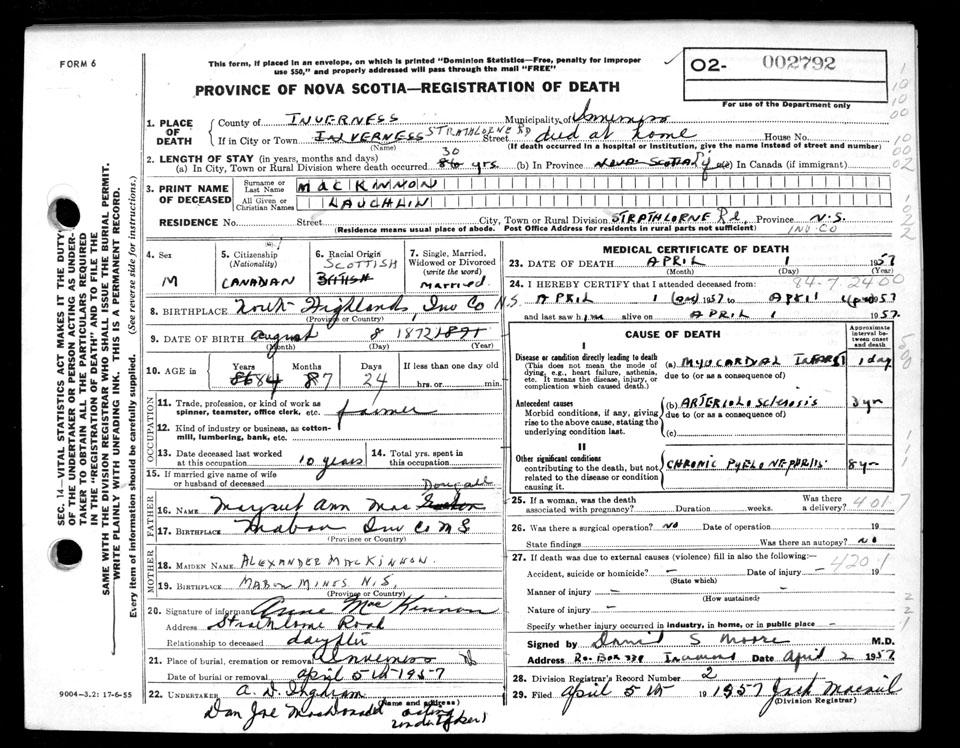 FORM 6
This form, if placed in an envelope, on which is printed "Dominion Statistics—Free, penalty for improper
use $50," and properly addressed will pass through the mail "FREE"
PROVINCE OF NOVA SCOTIA—REGISTRATION OF DEATH
O2- 002792
For use of the Department only
SEC. 14—VITAL STATISTICS ACT MAKES IT THE DUTY
OF THE UNDERTAKER OR PERSON ACTING AS UNDER-
TAKER TO OBTAIN ALL THE PARTICULARS REQUIRED
IN THE "REGISTRATION OF DEATH" AND TO FILE THE
SAME WITH THE DIVISION REGISTRAR WHO SHALL ISSUE THE BURIAL PERMIT.
WRITE PLAINLY WITH UNFADING INK. THIS IS A PERMANENT RECORD.
Every item of information should be carefully supplied. (See reverse side for instructions.)
1. PLACE OF DEATH
County of INVERNESS Municipality of Inverness
If in City or Town INVERNESS STRATHLORNE RD Street died at home House No.
(Name) (If death occurred in a hospital or institution, give the name instead of street and number)
2. LENGTH OF STAY (in years, months and days)
(a) In City, Town or Rural Division where death occurred 30 86 yrs. (b) In Province Nova Scotia (c) In Canada (if immigrant)
3. PRINT NAME OF DECEASED
Surname or Last Name MACKINNON
All Given or Christian Names LAUCHLIN
RESIDENCE No. Street City, Town or Rural Division STRATHLORNE Rd, Province N.S.
(Residence means usual place of abode. Post Office Address for residents in rural parts not sufficient) INV CO
4. Sex M
5. Citizenship (Nationality) CANADIAN
6. Racial Origin SCOTTISH
7. Single, Married, Widowed or Divorced (write the word) Married
8. BIRTHPLACE North Highlands, Inv Co N.S.
(Province or Country)
9. DATE OF BIRTH August 8 1872 1871
(Month) (Day) (Year)
10. AGE in Years 86 84 Months 8 7 Days 24 If less than one day old hrs. or min.
OCCUPATION
11. Trade, profession, or kind of work as
spinner, teamster, office clerk, etc. farmer
12. Kind of industry or business, as cotton-
mill, lumbering, bank, etc.
13. Date deceased last worked at this occupation 10 years
14. Total yrs. spent in this occupation
15. If married give name of wife or husband of deceased Dougall
FATHER
16. NAME Margret Ann Mac
17. BIRTHPLACE Mabou Inv Co N S
(Province or Country)
MOTHER
18. MAIDEN NAME ALEXANDER MACKINNON.
19. BIRTHPLACE MABOU MINES N.S.
(Province or Country)
20. Signature of informant Anne MacKinnon
Address Strathlorne Road
Relationship to deceased daughter
21. Place of burial, cremation or removal Inverness
Date of burial or removal April 5th 1957
22. UNDERTAKER A. D. Ingraham
(Name and address)
Dan Joe MacDonald acting undertaker
9004-3.2: 17-6-55
MEDICAL CERTIFICATE OF DEATH
23. DATE OF DEATH APRIL 1 1957
(Month) (Day) (Year)
84-7-24 00
24. I HEREBY CERTIFY that I attended deceased from:
APRIL 1 1957 to April 1957
and last saw him alive on APRIL 1 1957
CAUSE OF DEATH
Approximate interval between onset and death
I
Disease or condition directly leading to death
(This does not mean the mode of dying, e.g., heart failure, asthenia, etc. It means the disease, injury, or complication which caused death.)
(a) MYOCARDIAL INFARCT 1 day
due to (or as a consequence of)
Antecedent causes
Morbid conditions, if any, giving rise to the above cause, stating the underlying condition last.
(b) ARTERIOLOSCLEROSIS
due to (or as a consequence of)
(c)
II
Other significant conditions
contributing to the death, but not related to the disease or condition causing it.
CHRONIC PYELONEPHRITIS 8 yr
25. If a woman, was the death associated with pregnancy? Duration weeks. Was there a delivery? 401.7
26. Was there a surgical operation? NO Date of operation 19
State findings Was there an autopsy? NO
27. If death was due to external causes (violence) fill in also the following:—
4201
Accident, suicide or homicide? — Date of injury — 19
(State which)
Manner of injury —
(How sustained)
Nature of injury —
Specify whether injury occurred in industry, in home, or in public place —
Signed by David S Moore M.D.
Address P.o. Box 338 Inverness Date April 2 1957
28. Division Registrar's Record Number 2
29. Filed April 5th 1957 Jack MacNeil
(Division Registrar)